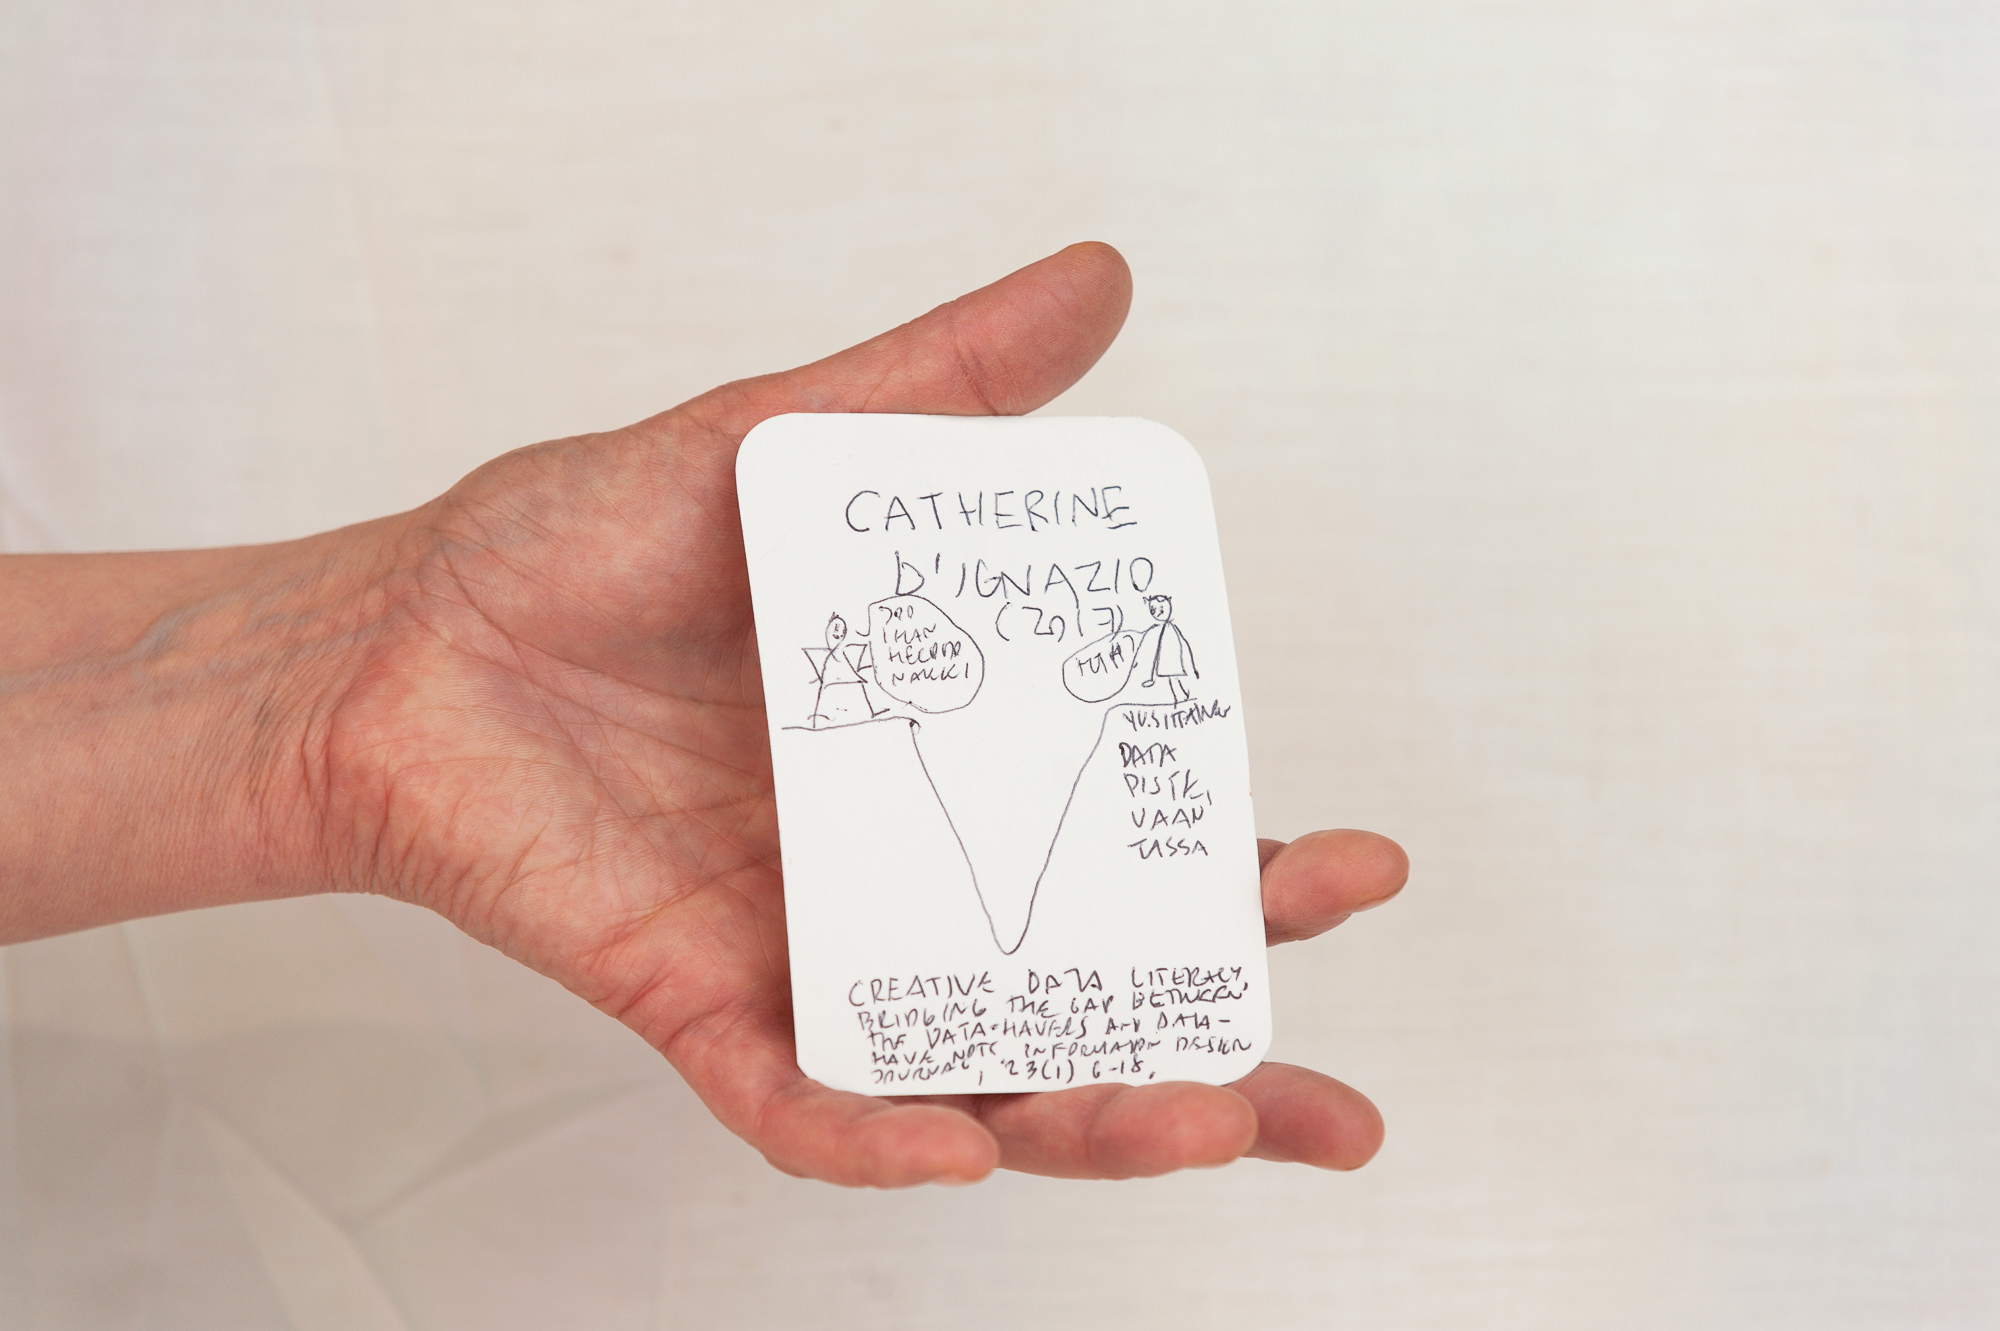 CATHERINE
D'IGNAZIO
(2017)
JOO
IHAN
HELPPO
NAKKI
HUH?
DATA
PISTE,
VAAN
TASSA
CREATIVE DATA LITERACY,
BRIDGING THE GAP BETWEEN
THE DATA-HAVERS AND DATA-
HAVE NOTS INFORMATION DESIGN
JOURNAL, 23(1) 6-18.